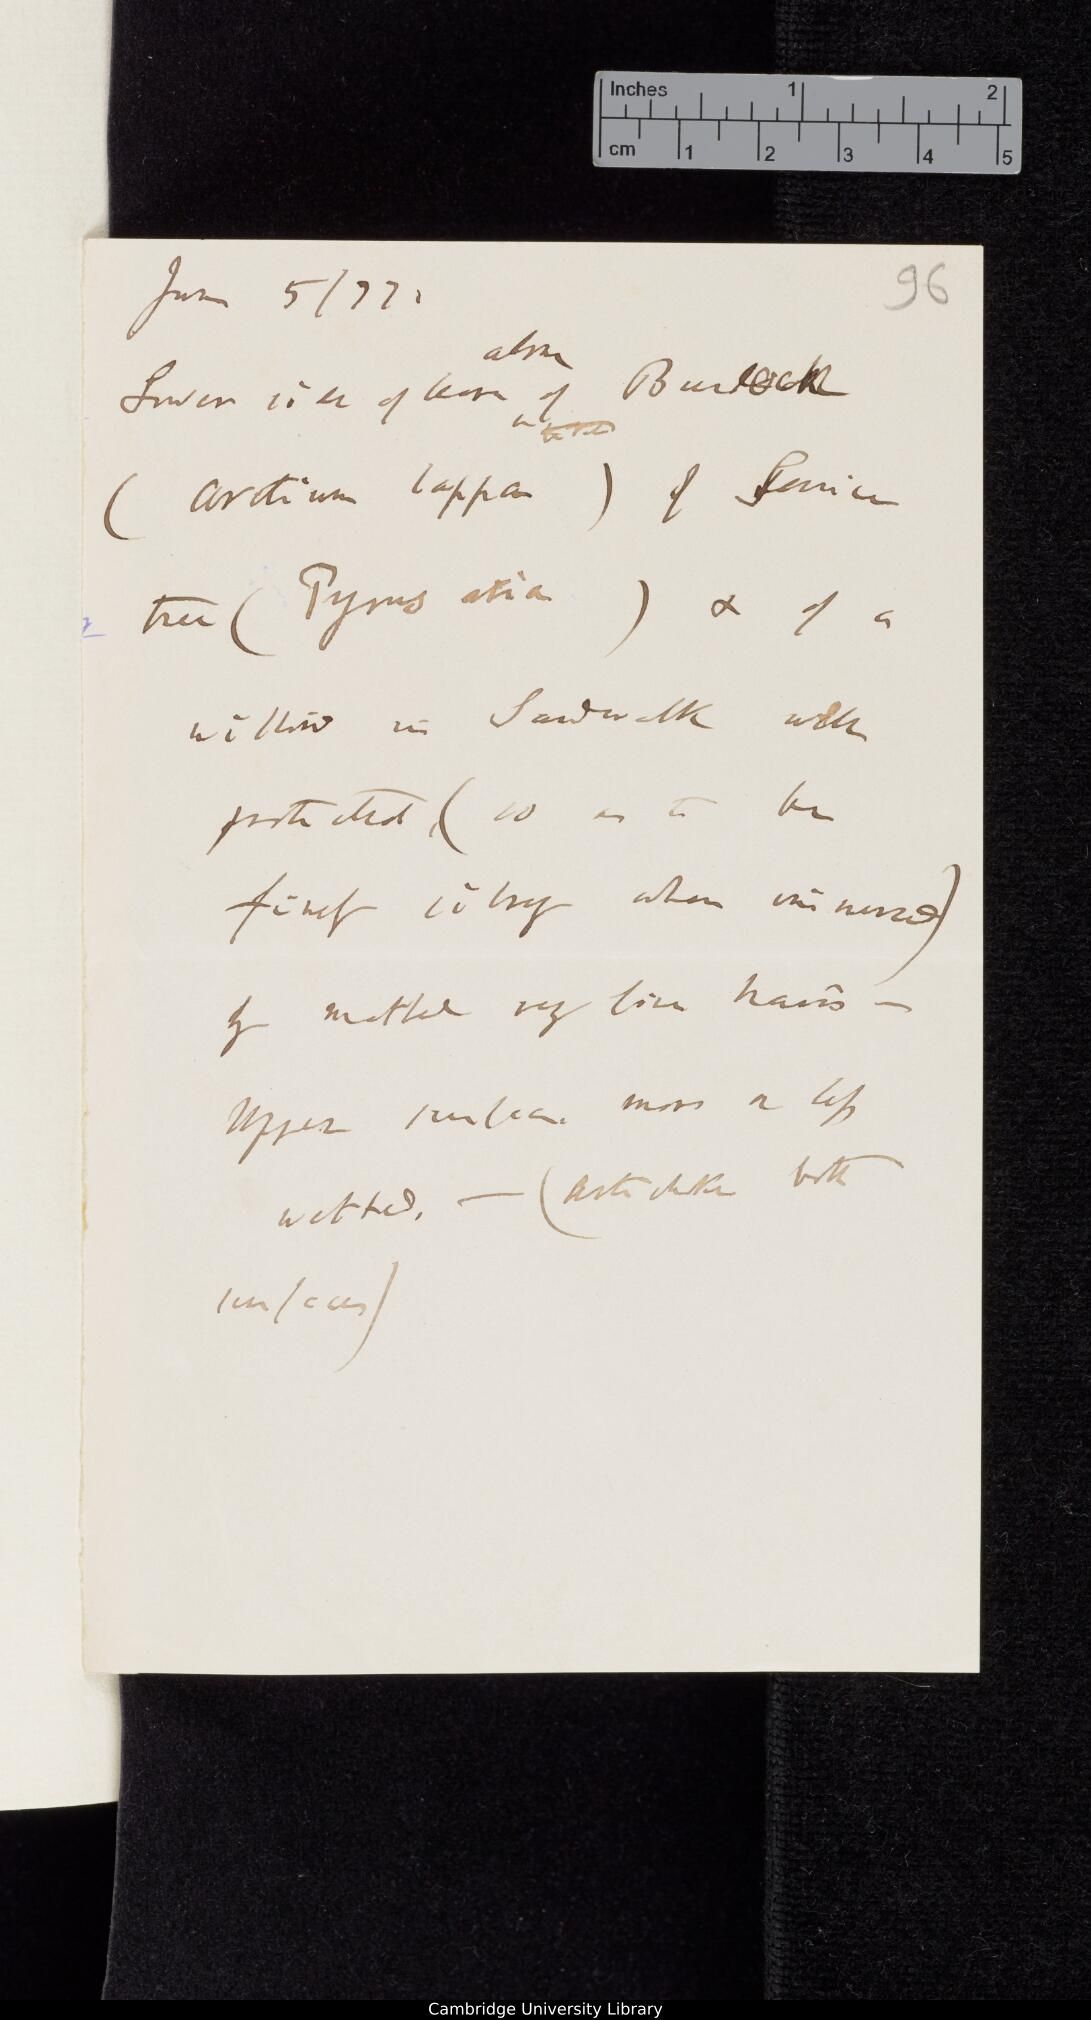 Inches 1 2
cm 1 2 3 4 5
96
June 5/77.
alone
Lower side of leaves of Burdock
(Arctium lappa) of Service
tree (Pyrus aria) & of a
willow in Sandwalk well
protected, (so as to be
finely silvery when immersed)
by matted very fine hairs —
Upper surface more or less
wetted. — (Artichoke both
surfaces)
Cambridge University Library